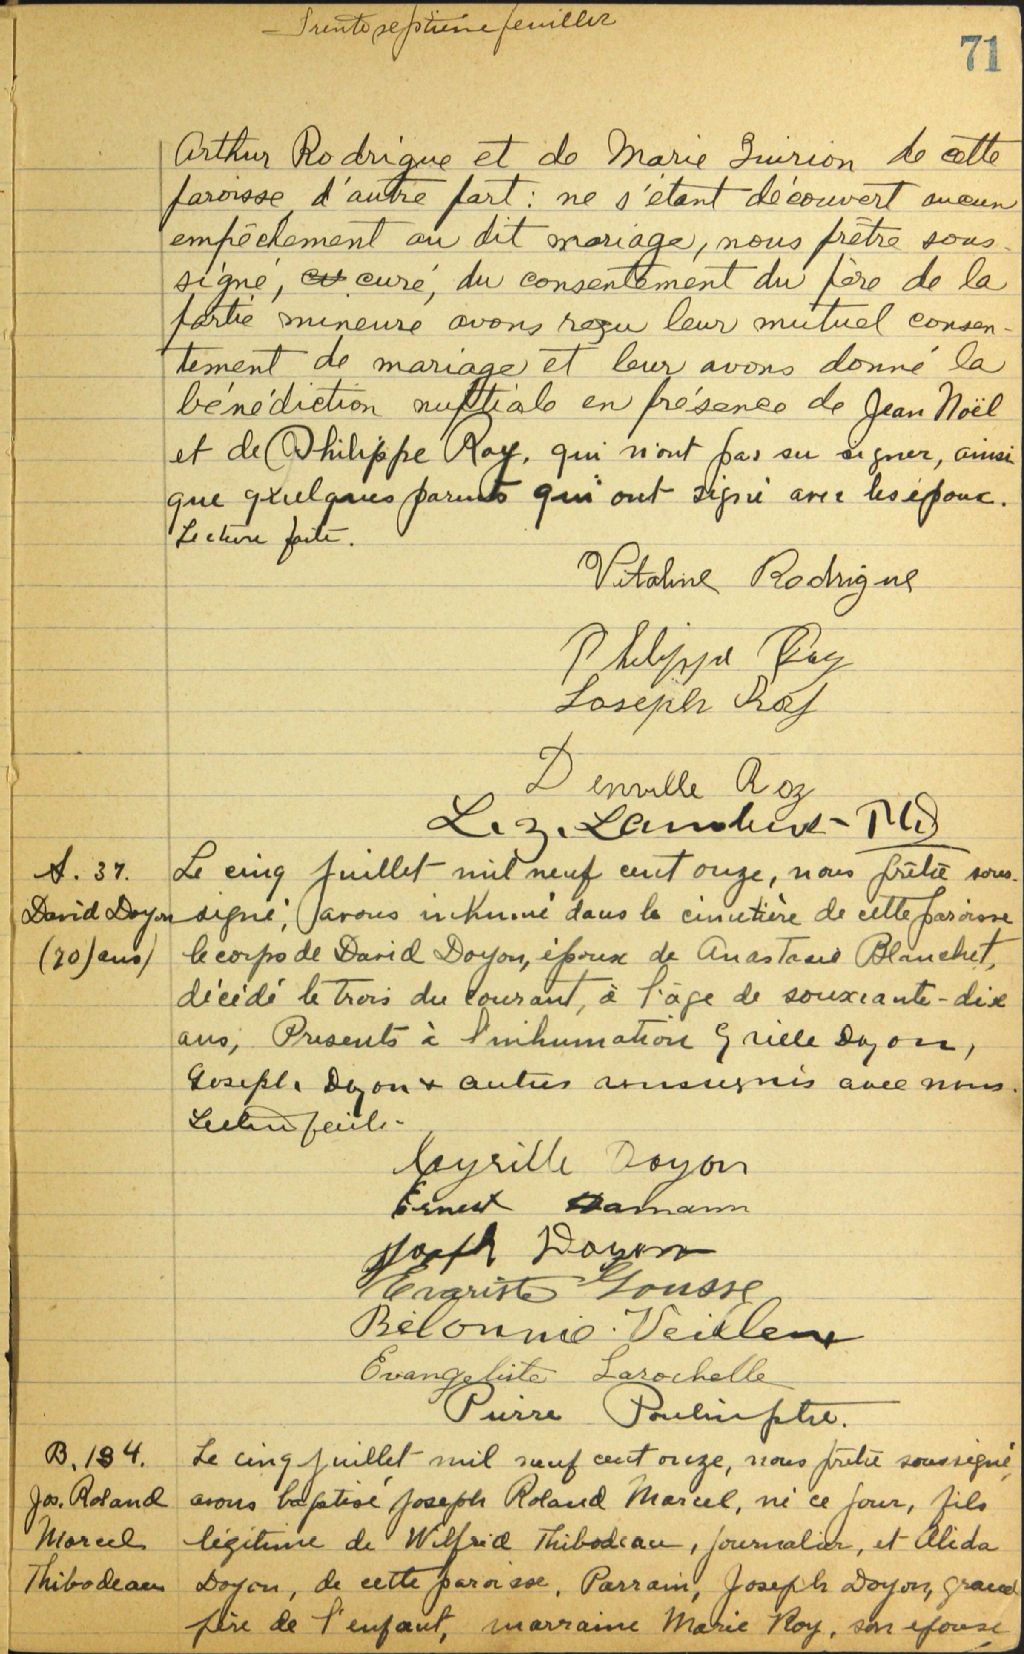 Trente septième feuillet
71
Arthur Rodrigue et de Marie Quirion de cette
paroisse, d'autre part: ne s'étant découvert aucun
empêchement au dit mariage, nous prêtre sous-
signé, cu curé, du consentement du père de la
partie mineure avons reçu leur mutuel consen-
tement de mariage et leur avons donné la
bénédiction nuptiale en présence de Jean Noël
et de Philippe Roy, qui n'ont pas su signer, ainsi
que quelques parents qui ont signé avec les époux.
Lecture faite.
Vitaline Rodrigue
Philippe Roy
Joseph Roy
Denville Roy
L. Z. Lambert - Ptre
S. 37.
David Doyon
(70) ans)
Le cinq juillet mil neuf cent onze, nous prêtre sous-
signé, avons inhumé dans le cimetière de cette paroisse
le corps de David Doyon, époux de Anastasie Blanchet,
décédé le trois du courant, à l'âge de souxiante-dix
ans, Presents à l'inhumation Cyrille Doyon,
Joseph Doyon & autres soussignés avec nous.
Lecture faite.
Cyrille Doyon
Ernest
Joseph Doyon
Evariste Gousse
Bélonnie Veilleux
Evangeliste Larochelle
Pierre Poulin ptre.
B. 134.
Jos. Roland
Marcel
Thibodeau
Le cinq juillet mil neuf cent onze, nous prêtre soussigné,
avons baptisé Joseph Roland Marcel, né ce jour, fils
légitime de Wilfrid Thibodeau, journalier, et Alida
Doyon, de cette paroisse. Parrain, Joseph Doyon, grand
père de l'enfant, marraine Marie Roy, son epouse,